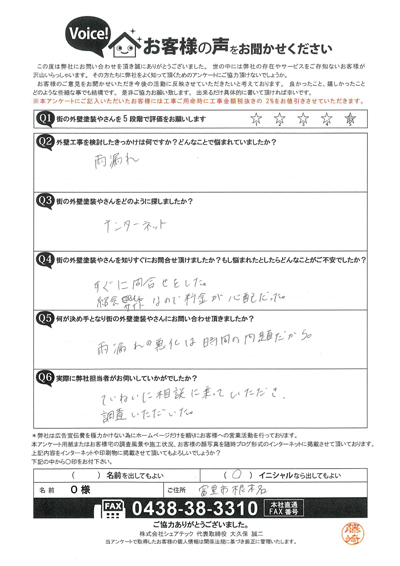 Voice!
お客様の声をお聞かせください
この度は弊社にお問い合わせを頂き誠にありがとうございました。世の中には弊社の存在やサービスをご存知ないお客様が
沢山いらっしゃいます。その方たちに弊社をよく知って頂くためのアンケートにご協力頂けないでしょうか。
お客様のご意見をお聞かせいただき今後の活動に反映させていただきたいと考えております。良かったこと、嬉しかったこと
どのような些細な事でも結構です。是非ご協力お願い致します。出来るだけ具体的に書いて頂ければ幸いです。
※本アンケートにご記入いただいたお客様には工事ご用命時に工事金額税抜きの 2%をお値引きさせていただきます。
Q1 街の外壁塗装やさんを 5 段階で評価をお願いします
Q2 外壁工事を検討したきっかけは何ですか？どんなことで悩まれていましたか？
雨漏れ
Q3 街の外壁塗装やさんをどのように探しましたか？
インターネット
Q4 街の外壁塗装やさんを知りすぐにお問合せ頂けましたか？もし悩まれたとしたらどんなことがご不安でしたか？
すぐに問合せをした。
紹介サイトなので料金が心配だった。
Q5 何が決め手となり街の外壁塗装やさんにお問い合わせ頂けましたか？
雨漏れの悪化は時間の問題だから。
Q6 実際に弊社担当者がお伺いしていかがでしたか？
ていねいに相談に乗っていただき、
調査いただいた。
＊弊社は広告宣伝費を極力かけない為にホームページだけを頼りお客様への営業活動を行っております。
本アンケート用紙またはお客様宅の調査風景や施工状況、お客様の顔写真を随時ブログ形式のインターネットに掲載させて頂いております。
上記内容をインターネットや印刷物に掲載させて頂いてもよろしいでしょうか？
下記の中から〇印をお付け下さい。
（ ）名前を出してもよい （〇）イニシャルなら出してもよい
名 前 O 様 ご住所 富里市根木名
FAX 0438-38-3310 本社直通 FAX 番号
ご協力ありがとうございました。
株式会社シェアテック 代表取締役 大久保 誠二
当アンケートで取得したお客様の個人情報は関係法規に基づき厳正に管理いたします。
藤崎